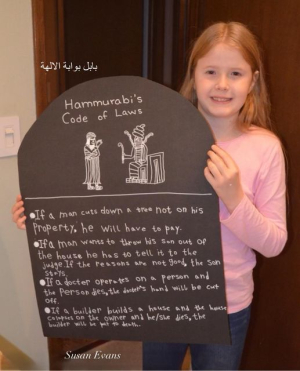 بابل بوابة الالهة
Hammurabi's
Code of Laws
If a man cuts down a tree not on his
property, he will have to pay.
If a man wants to throw his son out of
the house he has to tell it to the
judge. If the reasons are not good, the son
stays.
If a doctor operates on a person and
the person dies, the doctor's hand will be cut
off.
If a builder builds a house and the house
collapses on the owner and he/she dies, the
builder will be put to death.
Susan Evans